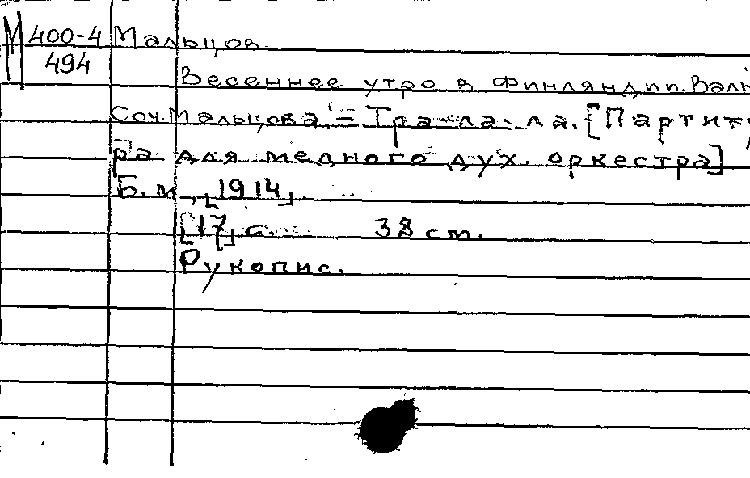 М 400-4 Мальцов.
494
Весеннее утро в Финляндии. Валь
Соч. Мальцова = Тра-ла-ла. [Партиту
ра для медного дух. оркестра]
Б.м., [1914].
[17] с. 38 см.
Рукопис.